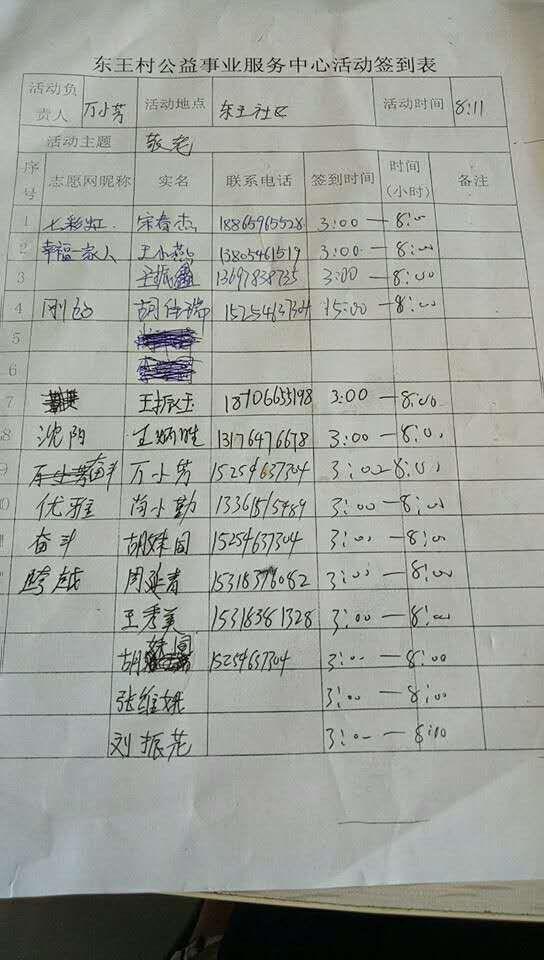 东王村公益事业服务中心活动签到表
活动负责人 万小芳 活动地点 东王社区 活动时间 8:11
活动主题 敬老
序号 志愿网昵称 实名 联系电话 签到时间 时间(小时) 备注
1 七彩虹 宋春杰 18865965528 3:00—8:00
2 幸福一家人 王小燕 13805461519 3:00—8:00
3 王振鑫 3:00—8:00
4 胡 15254637304 15:00—8:00
5
6
7 王振玉 18706655198 3:00—8:00
8 沈阳 王炳胜 13176476678 3:00—8:00
9 万小芳 15254637304 3:00—8:00
10 优雅 尚小勤 13361515489 3:00—8:00
奋斗 胡 15254637304 3:00—8:00
跨越 周延春 15318376082 3:00—8:00
王秀美 15318381328 3:00—8:00
胡 15254637304 3:00—8:00
张维娥 3:00—8:00
刘振花 3:00—8:00